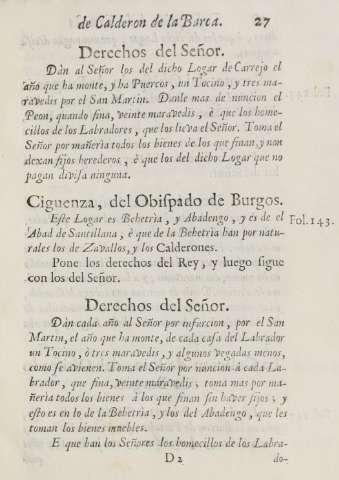 de Calderon de la Barca. 27
Derechos del Señor.
Dàn al Señor los del dicho Logar de Carrejo el
año que ha monte, y ha Puercos, un Tocino, y tres ma-
ravedis por el San Martin. Danle mas de nuncion el
Peon, quando fina, veinte maravedis, è que los home-
cillos de los Labradores, que los lieva el Señor. Toma el
Señor por mañerìa todos los bienes de los que finan, y non
dexan fijos herederos, è que los del dicho Logar que no
pagan divisa ninguna.
Ciguenza, del Obispado de Burgos.
Este Logar es Behetrìa, y Abadengo, y es de el Fol. 143.
Abad de Santillana, è que de la Behetrìa han por natu-
rales los de Zavallos, y los Calderones.
Pone los derechos del Rey, y luego sigue
con los del Señor.
Derechos del Señor.
Dàn cada año al Señor por infurcion, por el San
Martin, el año que ha monte, de cada casa del Labrador
un Tocino, ò tres maravedis, y algunos vegadas menos,
como se avienen. Toma el Señor por nuncion à cada La-
brador, que fina, veinte maravedis; toma mas por ma-
ñerìa todos los bienes à los que finan sin haver fijos; y
esto es en lo de la Behetrìa, y los del Abadengo, que les
toman los bienes muebles.
E que han los Señores los homecillos de los Labra-
D 2 do-